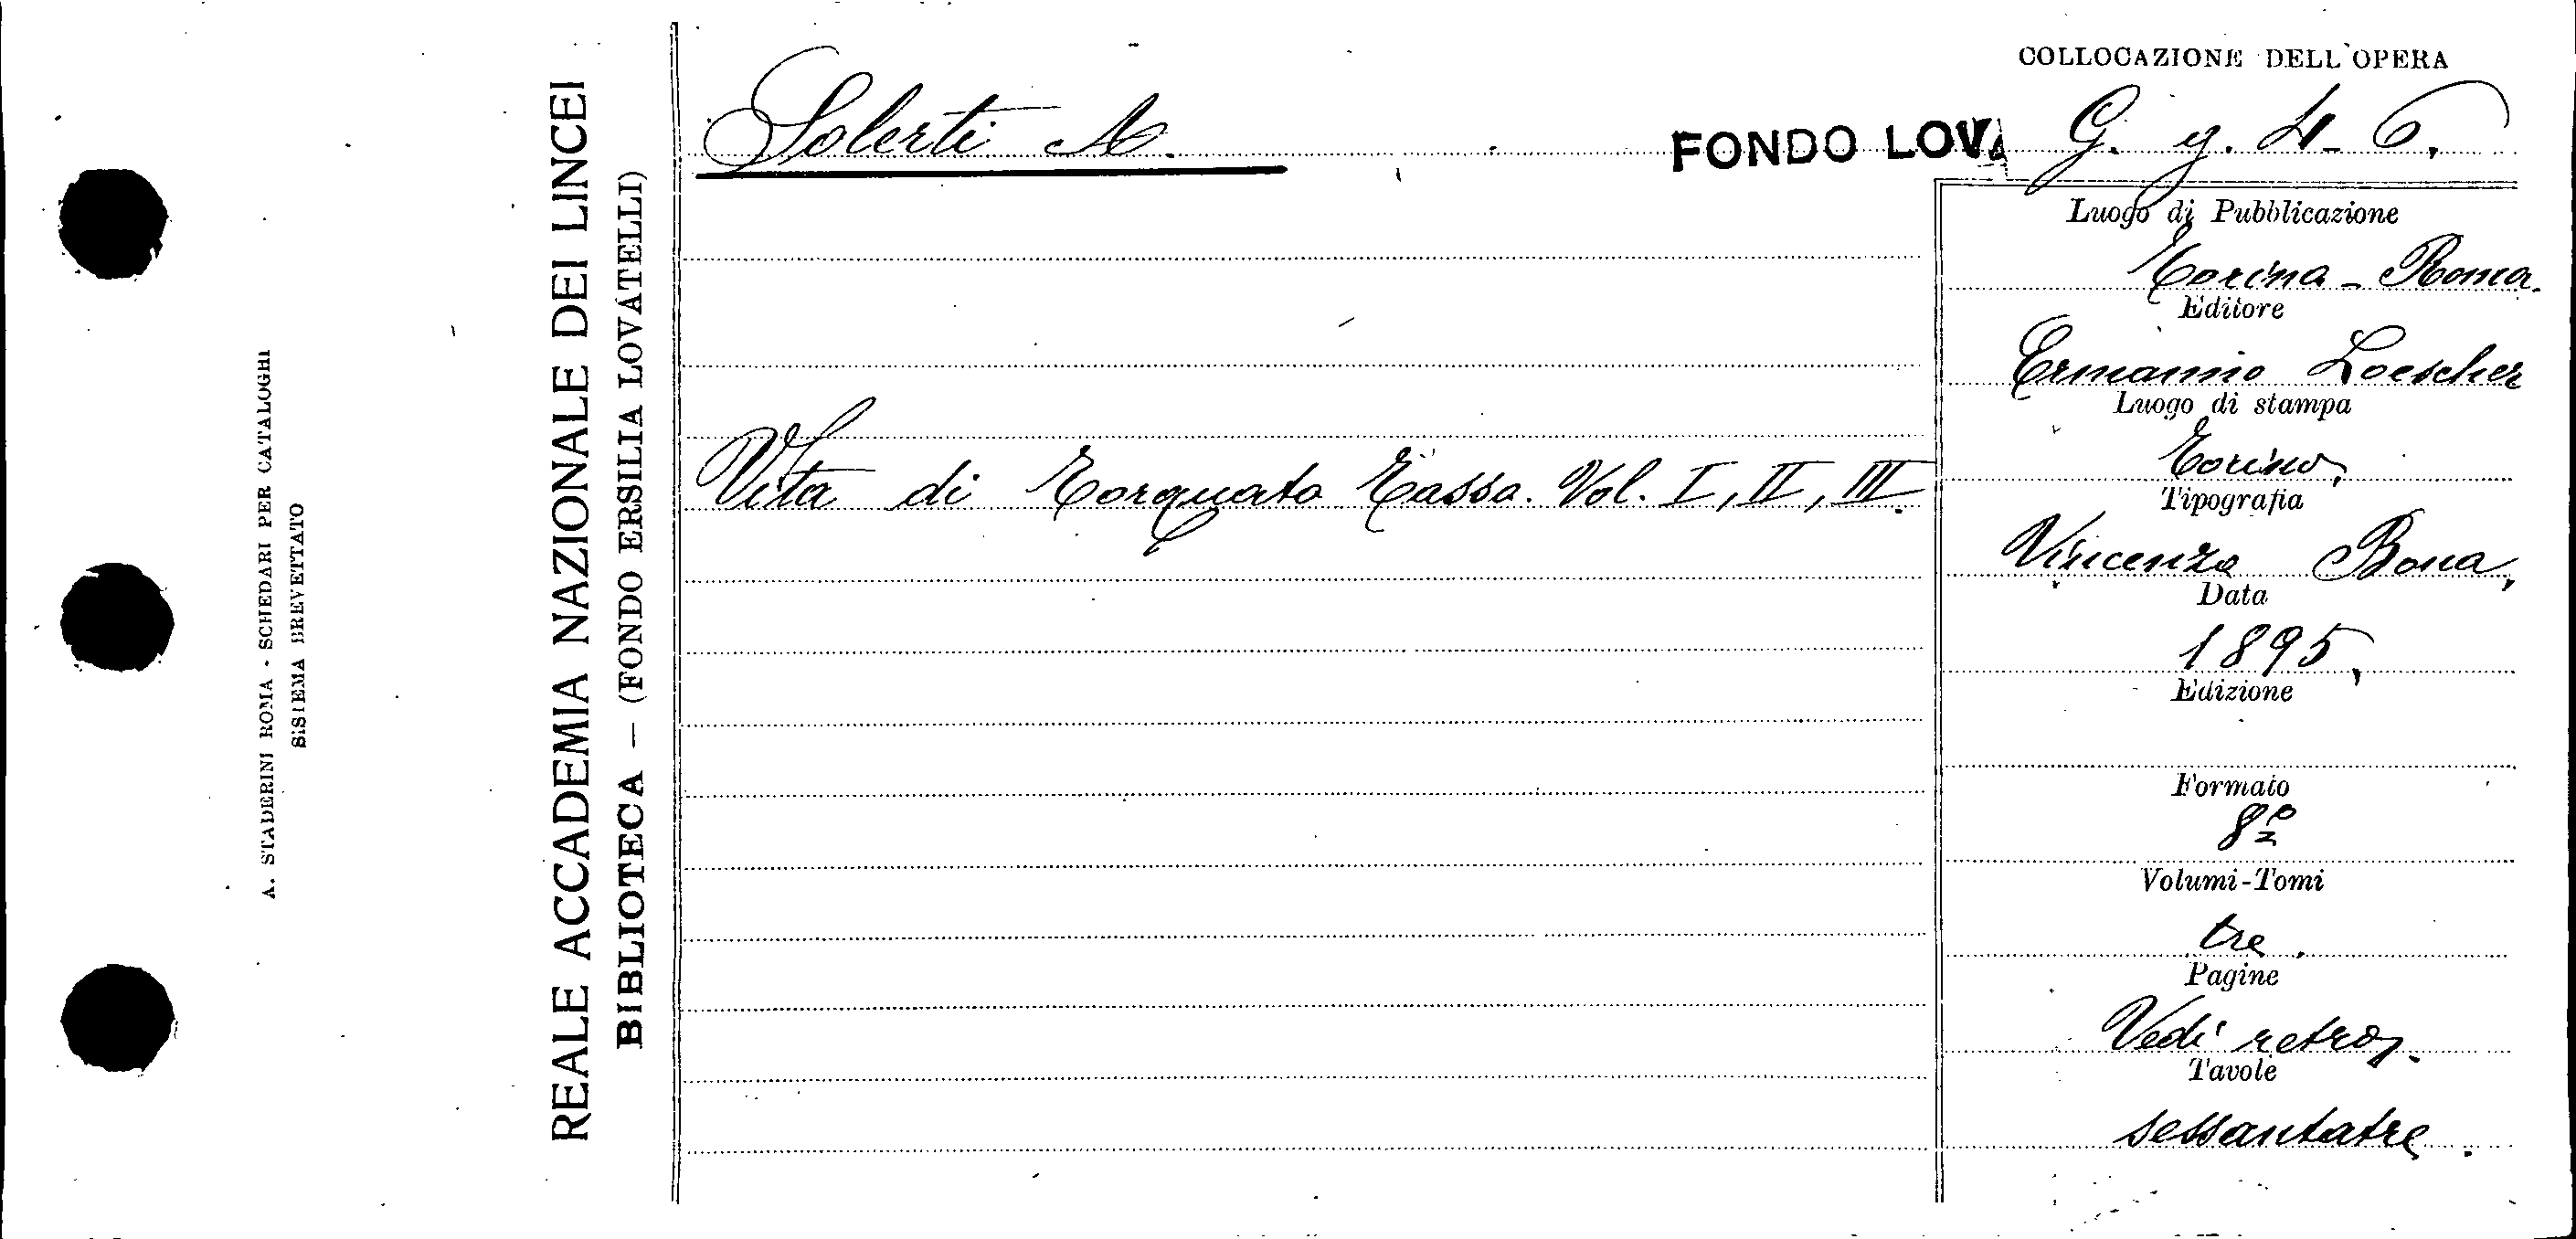 A. STADERINI ROMA - SCHEDARI PER CATALOGHI
SISTEMA BREVETTATO
REALE ACCADEMIA NAZIONALE DEI LINCEI
BIBLIOTECA — (FONDO ERSILIA LOVATELLI)
Solerti A.
FONDO LOVA
Vita di Torquato Tasso. Vol. I, II, III.
COLLOCAZIONE DELL'OPERA
G. g. 4-6.
Luogo di Pubblicazione
Torino - Roma.
Editore
Ermanno Loescher
Luogo di stampa
Torino,
Tipografia
Vincenzo Bona,
Data
1895,
Edizione
Formato
8º
Volumi-Tomi
tre.
Pagine
Vedi retro.
Tavole
sessantatre.